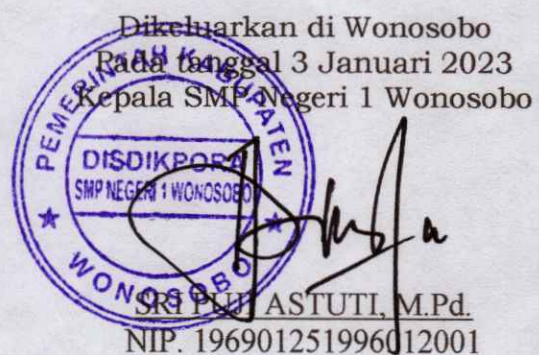 Dikeluarkan di Wonosobo
Pada tanggal 3 Januari 2023
Kepala SMP Negeri 1 Wonosobo
PEMERINTAH KABUPATEN
DISDIKPORA
SMP NEGERI 1 WONOSOBO
WONOSOBO
SRI PUJI ASTUTI, M.Pd.
NIP. 196901251996012001